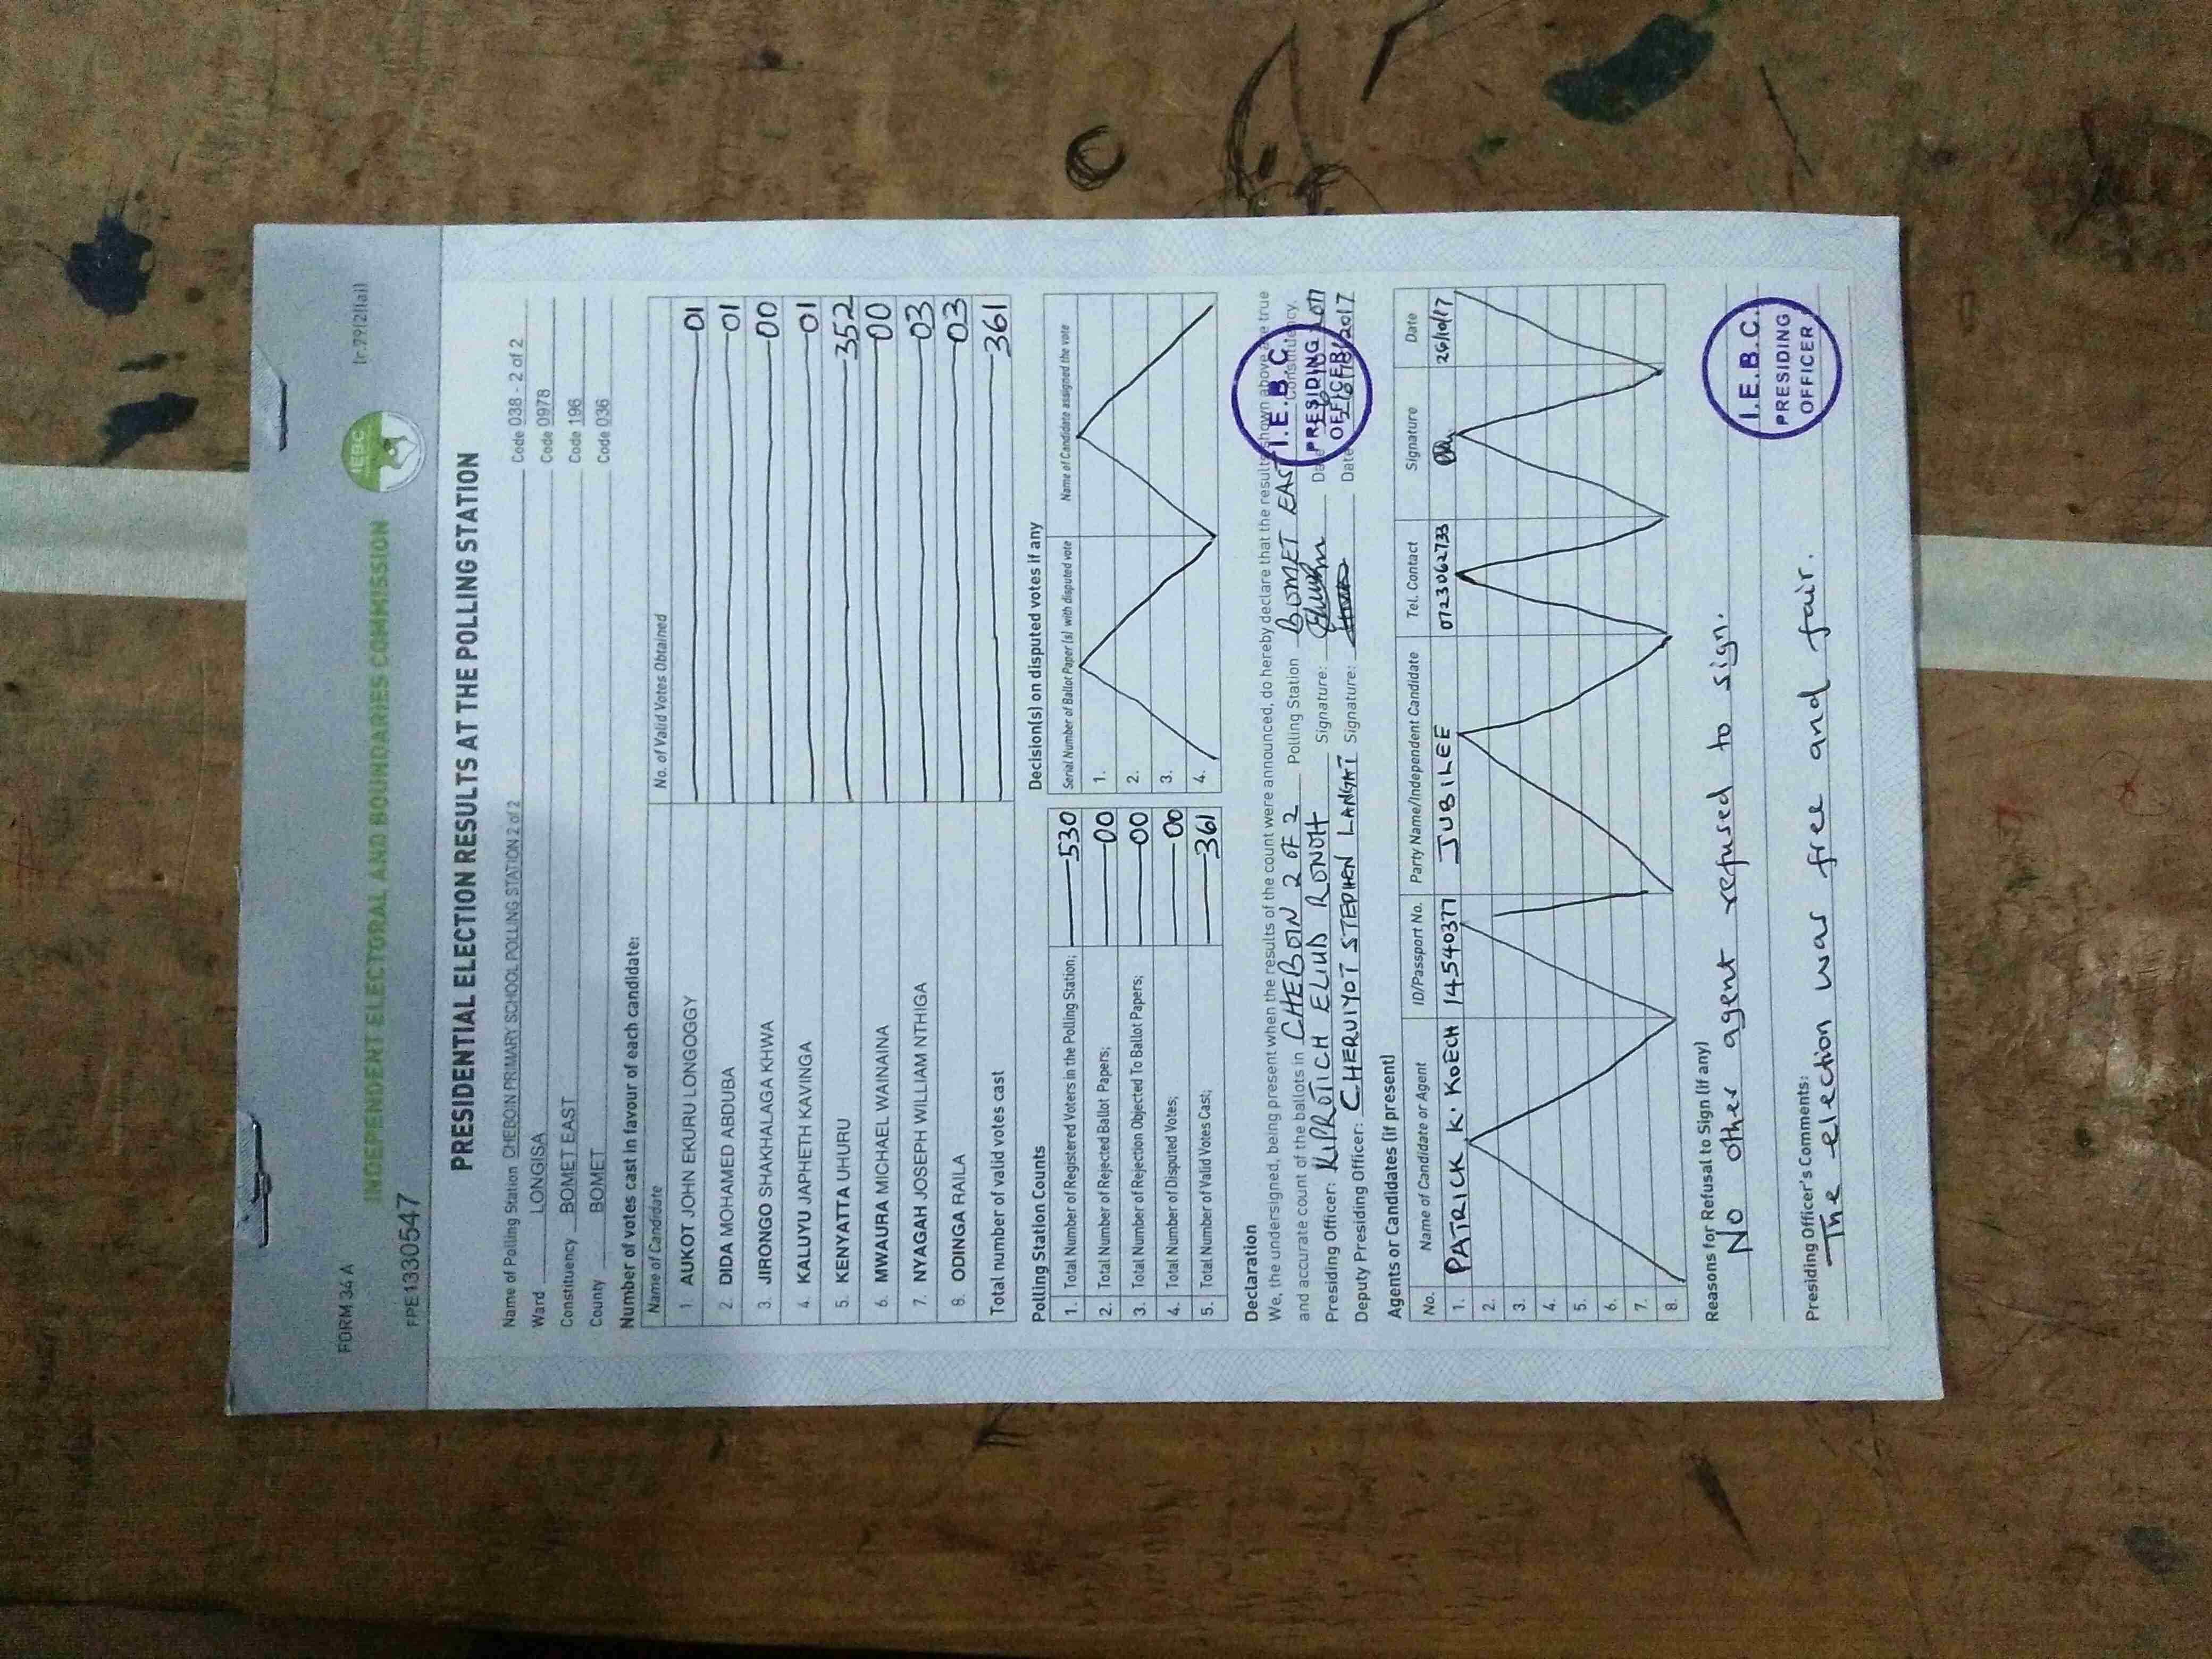 FORM 34 A
(r.79(2)(a))
INDEPENDENT ELECTORAL AND BOUNDARIES COMMISSION
IEBC
FPE1330547
PRESIDENTIAL ELECTION RESULTS AT THE POLLING STATION
Name of Polling Station CHEBOIN PRIMARY SCHOOL POLLING STATION 2 of 2 Code 038 - 2 of 2
Ward LONGISA Code 0978
Constituency BOMET EAST Code 196
County BOMET Code 036
Number of votes cast in favour of each candidate:
Name of Candidate No. of Valid Votes Obtained
1. AUKOT JOHN EKURU LONGOGGY 01
2. DIDA MOHAMED ABDUBA 01
3. JIRONGO SHAKHALAGA KHWA 00
4. KALUYU JAPHETH KAVINGA 01
5. KENYATTA UHURU 352
6. MWAURA MICHAEL WAINAINA 00
7. NYAGAH JOSEPH WILLIAM NTHIGA 03
8. ODINGA RAILA 03
Total number of valid votes cast 361
Polling Station Counts
1. Total Number of Registered Voters in the Polling Station; 530
2. Total Number of Rejected Ballot Papers; 00
3. Total Number of Rejection Objected To Ballot Papers; 00
4. Total Number of Disputed Votes; 00
5. Total Number of Valid Votes Cast; 361
Decision(s) on disputed votes if any
Serial Number of Ballot Paper (s) with disputed vote Name of Candidate assigned the vote
1.
2.
3.
4.
Declaration
We, the undersigned, being present when the results of the count were announced, do hereby declare that the results shown above are true
and accurate count of the ballots in CHEBOIN 2 OF 2 Polling Station BOMET EAST Constituency.
Presiding Officer: KIPROTICH ELIUD RONOH Signature: Date
Deputy Presiding Officer: CHERUIYOT STEPHEN LANGAT Signature: Date
I.E.B.C.
PRESIDING
OFFICER
Agents or Candidates (if present)
No. Name of Candidate or Agent ID/Passport No. Party Name/Independent Candidate Tel. Contact Signature Date
1. PATRICK K. KOECH 14540377 JUBILEE 0723062733 26/10/17
2.
3.
4.
5.
6.
7.
8.
Reasons for Refusal to Sign (if any)
No other agent refused to sign.
Presiding Officer's Comments:
The election was free and fair.
I.E.B.C.
PRESIDING
OFFICER